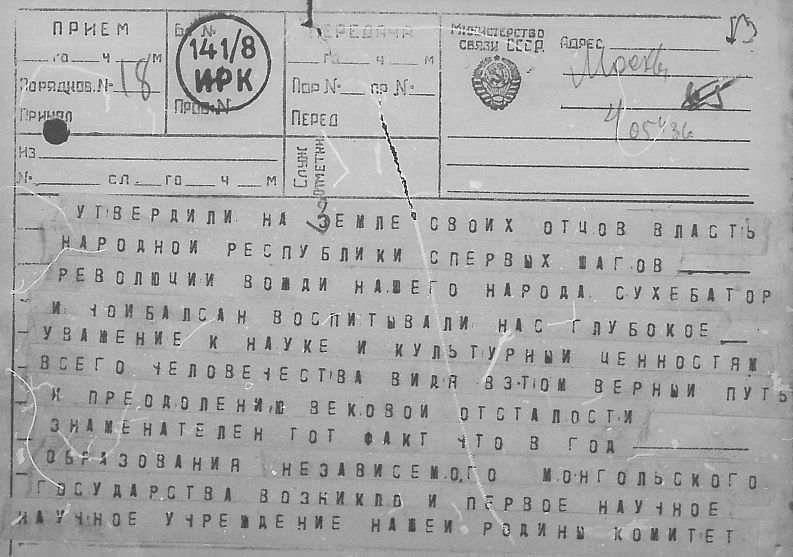 ПРИЕМ
БЛ №
ПЕРЕДАЧА
МИНИСТЕРСТВО
СВЯЗИ СССР
АДРЕС
141/8
ИРК
ГО Ч М
ГО Ч М
Москва
ПОРЯДКОВ. № 18
ПОР № ПР №
ПРОВ. №
ПРИНЯЛ
ПЕРЕД
4 05 36
ИЗ
СЛУЖ
ОТМЕТКИ
№ СЛ. ГО Ч М
УТВЕРДИЛИ НА ЗЕМЛЕ СВОИХ ОТЦОВ ВЛАСТЬ
НАРОДНОЙ РЕСПУБЛИКИ СПЕРВЫХ ШАГОВ
РЕВОЛЮЦИИ ВОЖДИ НАШЕГО НАРОДА СУХЕБАТОР
И ЧОИБАЛСАН ВОСПИТЫВАЛИ НАС ГЛУБОКОЕ
УВАЖЕНИЕ К НАУКЕ И КУЛЬТУРНЫМ ЦЕННОСТЯМ
ВСЕГО ЧЕЛОВЕЧЕСТВА ВИДЯ ВЭТОМ ВЕРНЫЙ ПУТЬ
К ПРЕОДОЛЕНИЮ ВЕКОВОЙ ОТСТАЛОСТИ
ЗНАМЕНАТЕЛЕН ТОТ ФАКТ ЧТО В ГОД
ОБРАЗОВАНИЯ НЕЗАВИСЕМОГО МОНГОЛЬСКОГО
ГОСУДАРСТВА ВОЗНИКЛО И ПЕРВОЕ НАУЧНОЕ
НАУЧНОЕ УЧРЕЖДЕНИЕ НАШЕЙ РОДИНЫ КОМИТЕТ